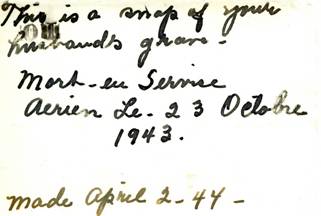 This is a snap of your
husband's grave -
Mort-en Servise
Aerien Le - 23 Octobre
1943.
made April 2-44-